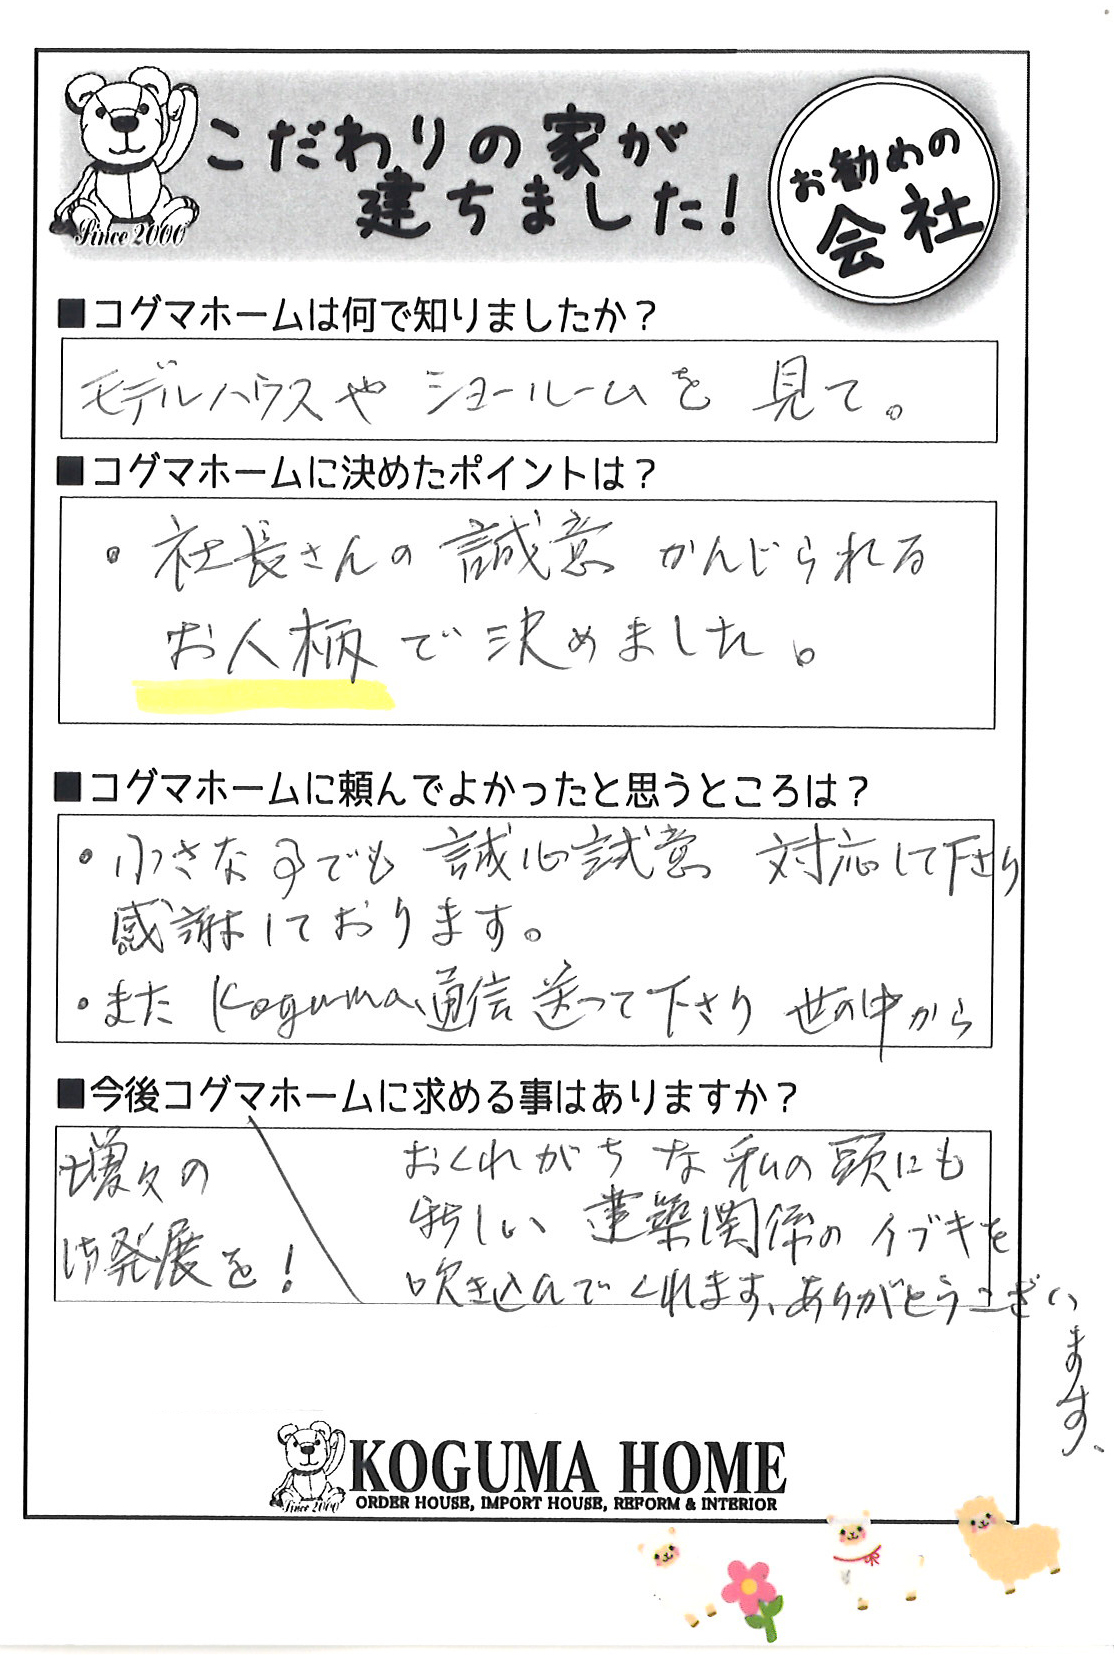 こだわりの家が
建ちました!
お勧めの
会社
Since 2000
■コグマホームは何で知りましたか?
モデルハウスや ショールームを 見て。
■コグマホームに決めたポイントは?
・社長さんの 誠意 かんじられる
お人柄で決めました。
■コグマホームに頼んでよかったと思うところは?
・小さな事でも 誠心誠意 対応して下さり
感謝しております。
・また Koguma通信 送って下さり 世の中から
■今後コグマホームに求める事はありますか?
おくれがちな 私の頭にも
新しい 建築関係の イブキを
吹き込んでくれます、ありがとうござい
ます、
増々の
御発展を!
KOGUMA HOME
Since 2000
ORDER HOUSE, IMPORT HOUSE, REFORM & INTERIOR